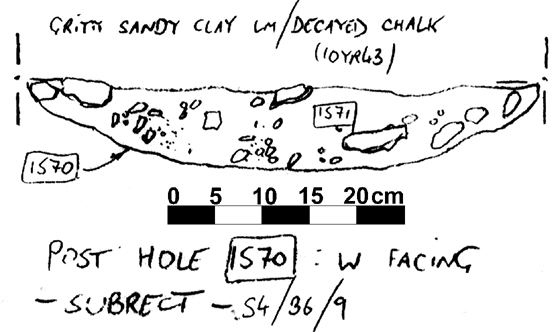 GRITTY SANDY CLAY LM/DECAYED CHALK
(10YR43)
1571
1570
0 5 10 15 20cm
POST HOLE 1570 : W FACING
- SUBRECT - S4/36/9